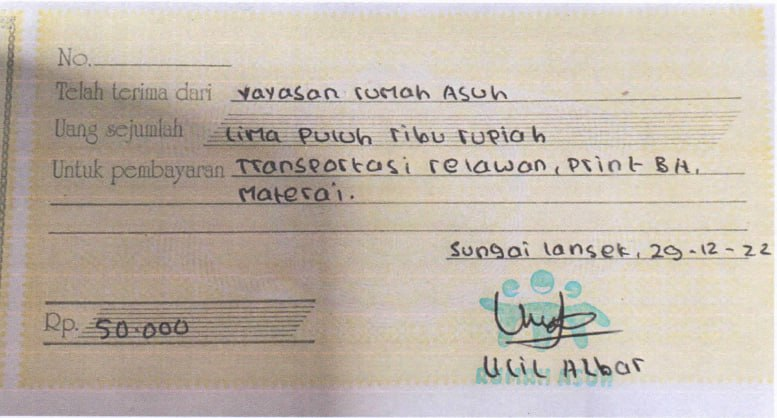 No.
Telah terima dari yayasan rumah Asuh
Uang sejumlah Lima puluh ribu rupiah
Untuk pembayaran Transportasi relawan, print BH,
Materai.
Sungai lansek, 29-12-22
Rp. 50.000
Ulil Albar